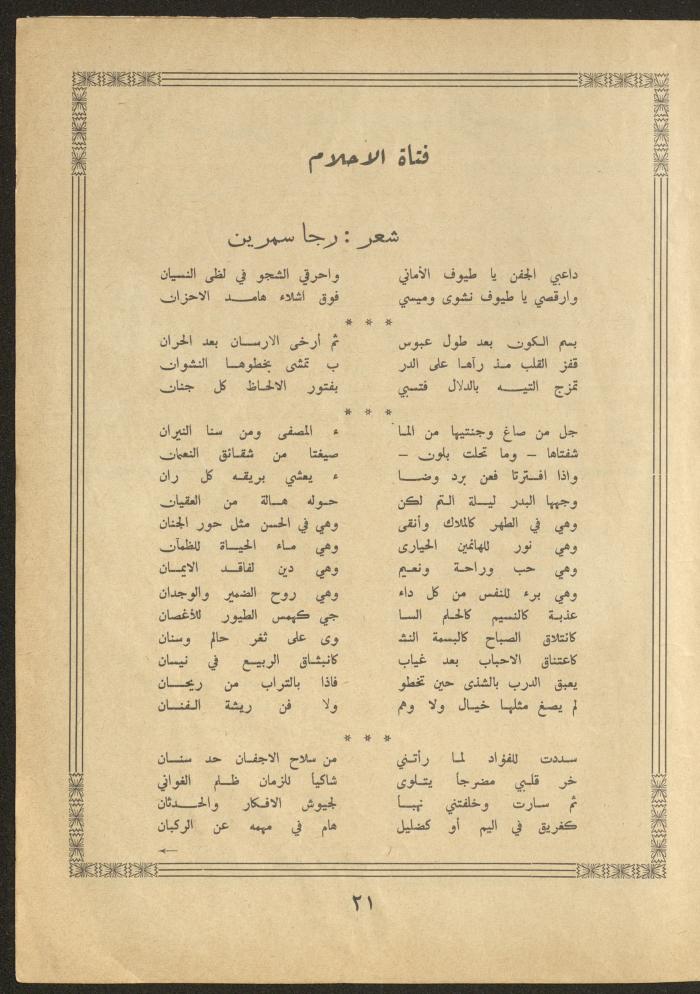 فتاة الاحلام
شعر : رجا سمرين
داعبي الجفن يا طيوف الأماني واحرقي الشجو في لظى النسيان
وارقصي يا طيوف نشوى وميسي فوق اشلاء هامد الاحزان
* * *
بسم الكون بعد طول عبوس ثم أرخى الارسان بعد الحران
قفز القلب مذ رآها على الدر ب تمشى بخطوها النشوان
تمزج التيه بالدلال فتسبي بفتور الالحاظ كل جنان
* * *
جل من صاغ وجنتيها من الما ء المصفى ومن سنا النيران
شفتاها – وما تحلت بلون – صيغتا من شقائق النعمان
واذا افترتا فعن برد وضا ء يعشي بريقه كل ران
وجهها البدر ليلة التم لكن حوله هالة من العقيان
وهي في الطهر كالملاك وأنقى وهي في الحسن مثل حور الجنان
وهي نور للهائمين الحيارى وهي ماء الحياة للظمآن
وهي حب وراحة ونعيم وهي دين لفاقد الايمان
وهي برء للنفس من كل داء وهي روح الضمير والوجدان
عذبة كالنسيم كالحلم السا جي كهمس الطيور للأغصان
كائتلاق الصباح كالبسمة النش وى على ثغر حالم وسنان
كاعتناق الاحباب بعد غياب كانبثاق الربيع في نيسان
يعبق الدرب بالشذى حين تخطو فاذا بالتراب من ريحان
لم يصغ مثلها خيال ولا وهم ولا فن ريشة الفنان
* * *
سددت للفؤاد لما رأتني من سلاح الاجفان حد سنان
خر قلبي مضرجاً يتلوى شاكياً للزمان ظلم الغواني
ثم سارت وخلفتني نهبا لجيوش الافكار والحدثان
كغريق في اليم أو كضليل هام في مهمه عن الركبان
←
٢١